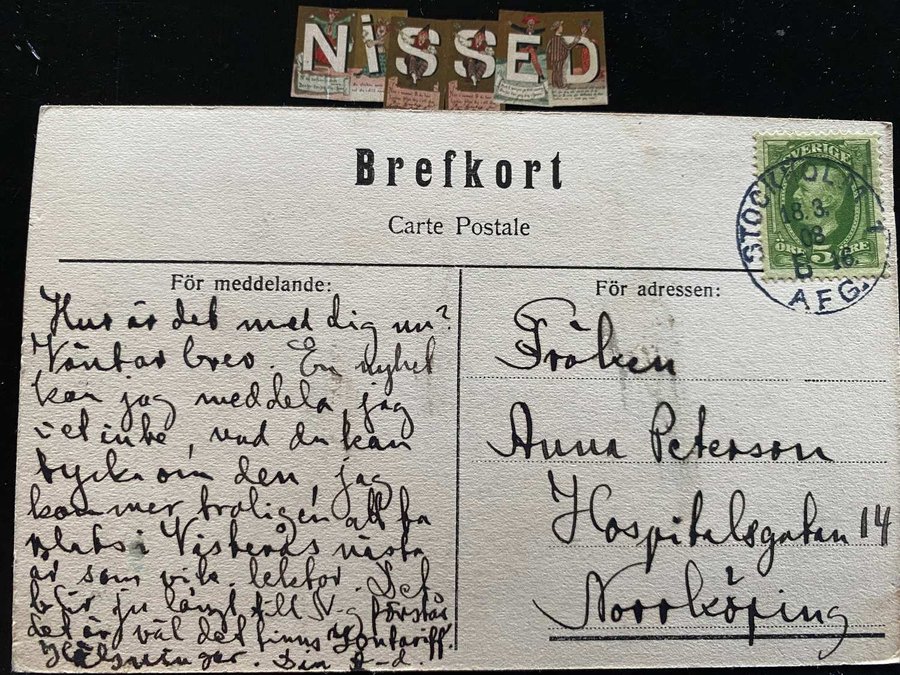 NiSSED
Brefkort
Carte Postale
SVERIGE
5 ÖRE
STOCKHOLM 1
18.3.
08
5 - 16
AFG.
För meddelande:
Hur är det med dig nu?
Väntar brev. En nyhet
kan jag meddela, jag
vet inte, vad du kan
tycka om den, jag
kommer troligen att få
plats i Västerås nästa
år som vik. lektor. Det
blir ju långt till N.
det är väl det finns zontariff.
Hälsningar. Din
För adressen:
Fröken
Anna Peterson
Hospitalsgatan 14
Norrköping